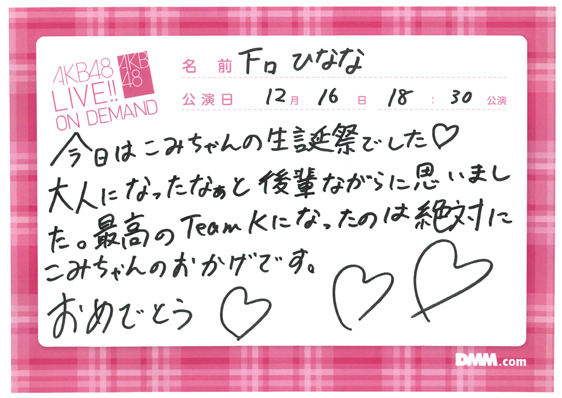 AKB48
LIVE!!
ON DEMAND
AKB
48
名 前 下口 ひなな
公演日 12月 16日 18:30 公演
今日はこみちゃんの生誕祭でした♡
大人になったなぁと後輩ながらに思いまし
た。最高のTeam Kになったのは絶対に
こみちゃんのおかげです。
おめでとう ♡ ♡ ♡
DMM.com